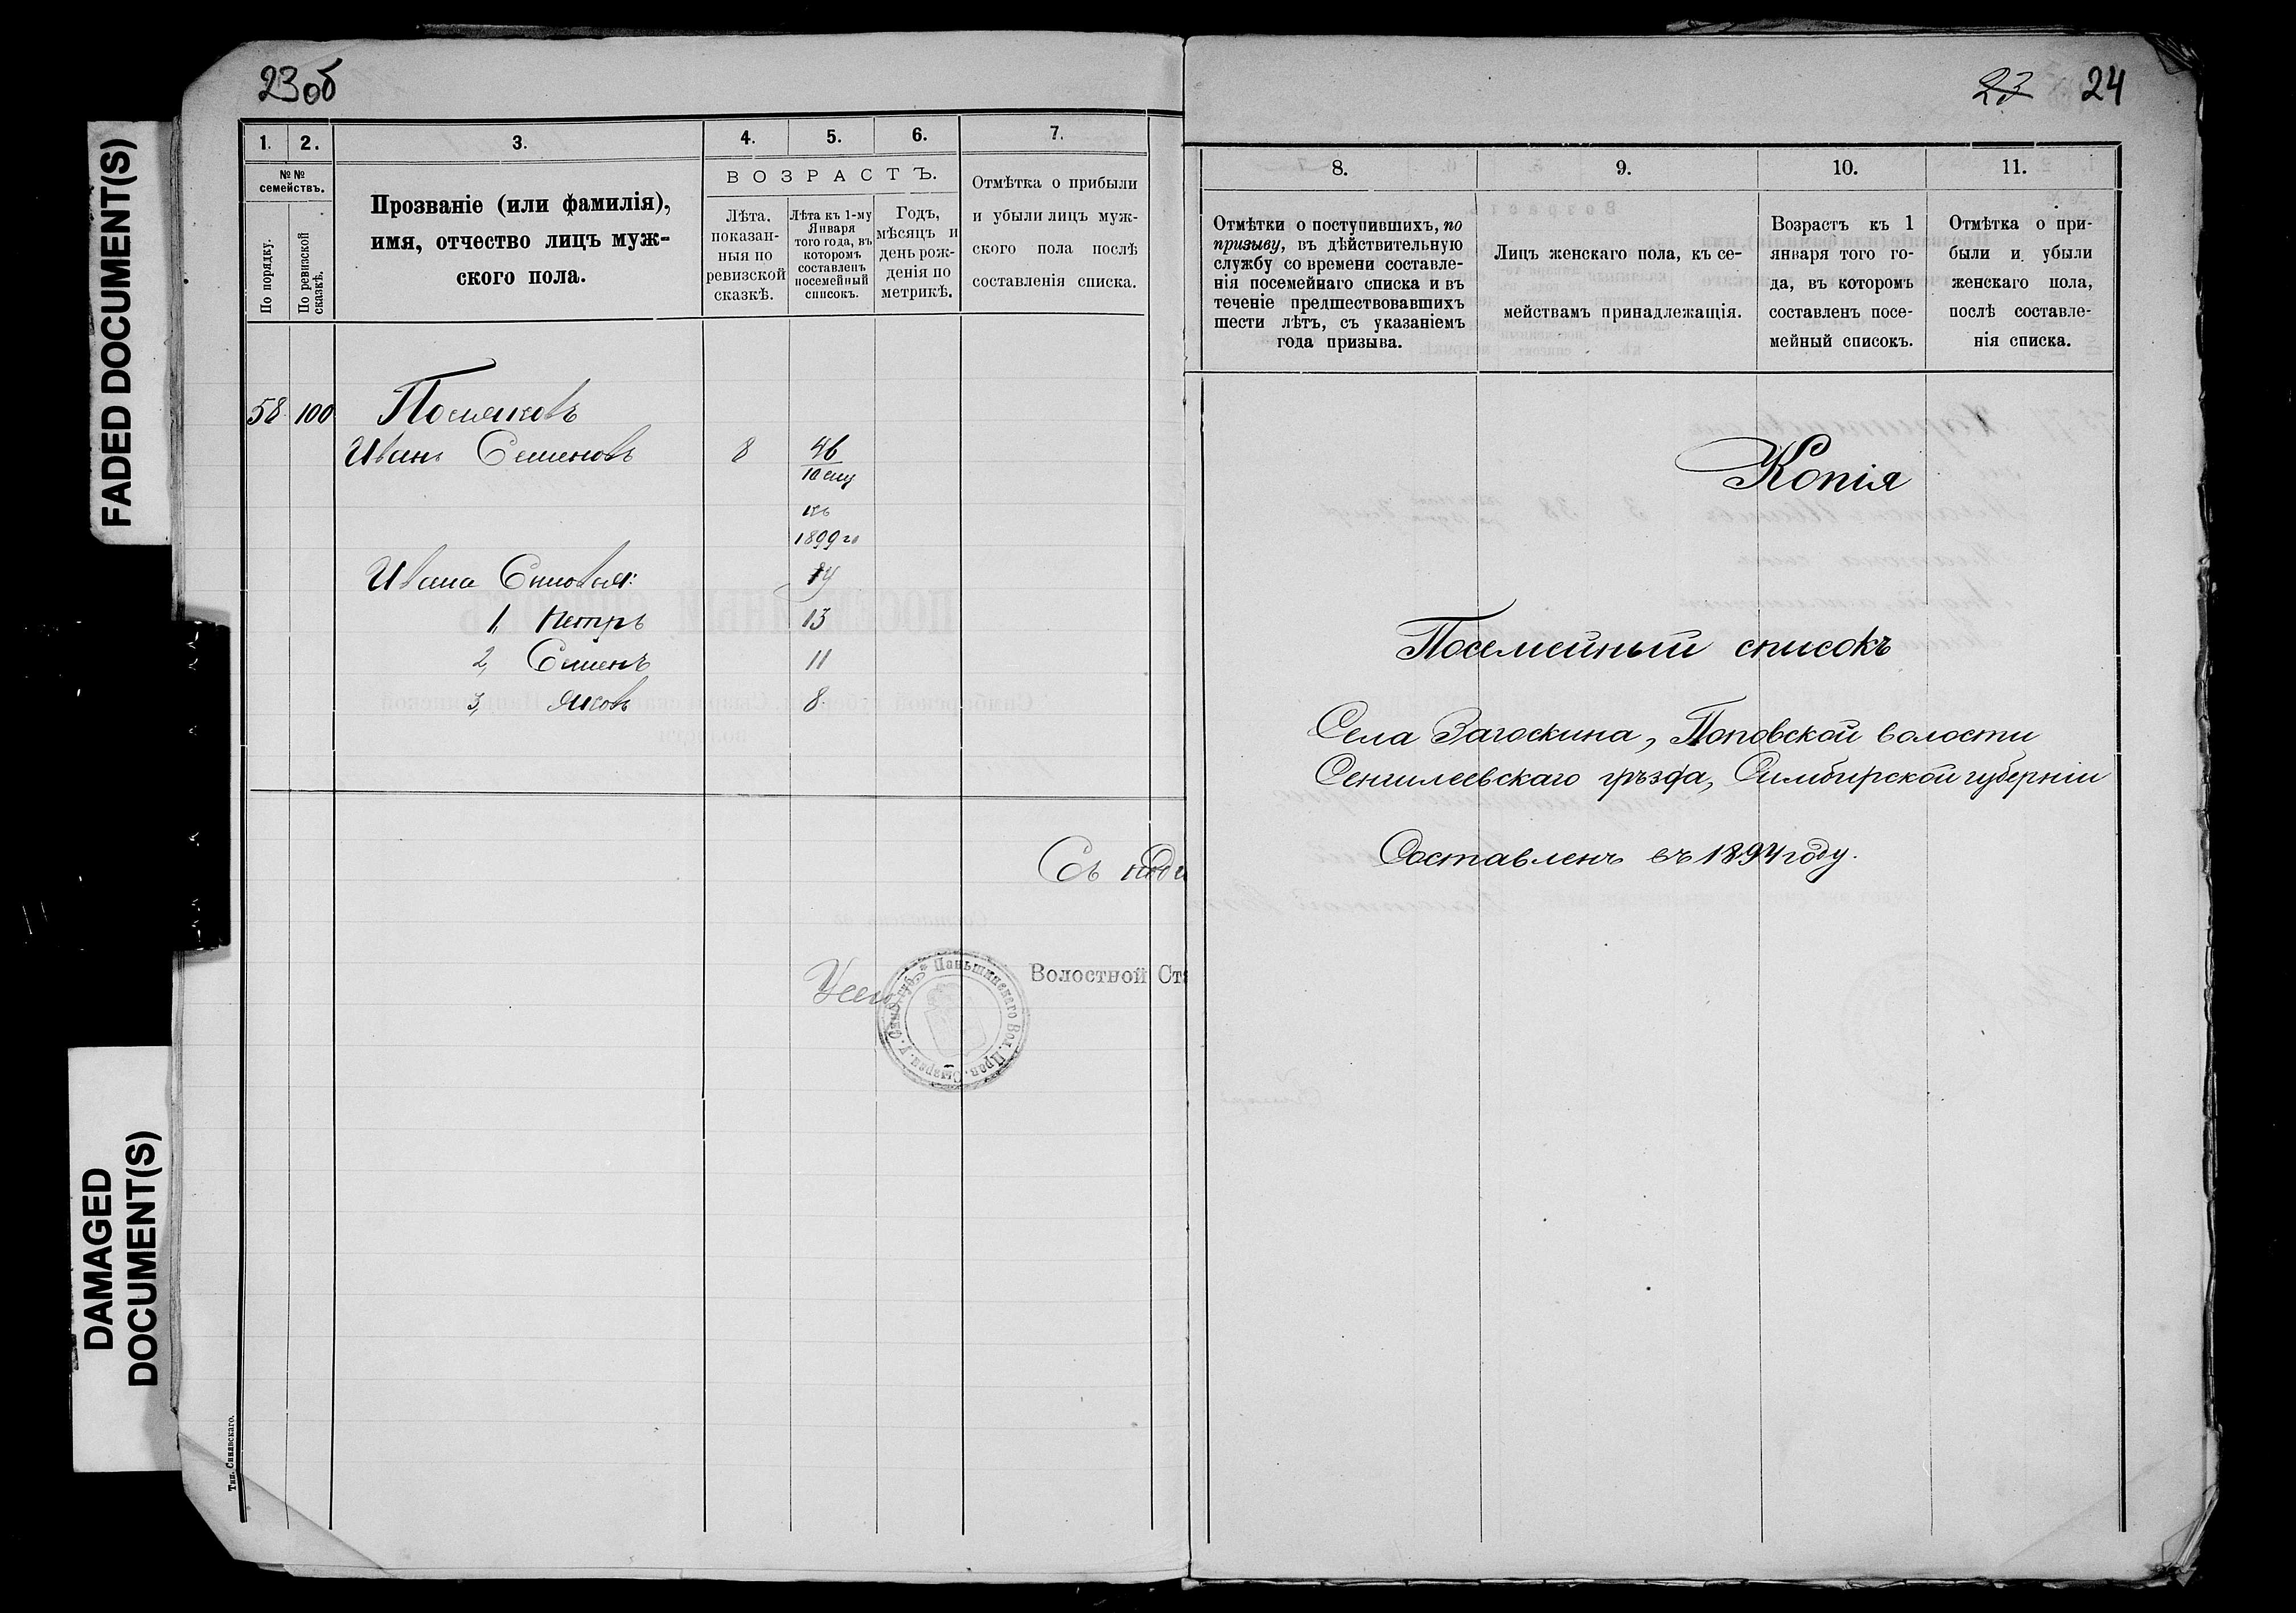 FADED DOCUMENT(S)
DAMAGED
DOCUMENT(S)
23об
1.
2.
3.
4.
5.
6.
7.
№ №
семействъ.
По порядку.
По ревизской
сказкѣ.
Прозваніе (или фамилія),
имя, отчество лицъ муж-
ского пола.
ВОЗРАСТЪ.
Лѣта.
показан-
ныя по
ревизской
сказкѣ.
Лѣта къ 1-му
Января
того года, въ
которомъ
составленъ
посемейный
списокъ.
Годъ,
мѣсяцъ и
день рож-
денія по
метрикѣ.
Отмѣтка о прибыли
и убыли лицъ муж-
ского пола послѣ
составленія списка.
58 100
Иванъ Семеновъ 8 46
1899 го
Ивана Сыновья:
1, Петръ 13
2, Семенъ 11
3, Яковъ 8
Съ
Волостной Ста
Паньшинского Вол. Прав. Сызран. у. Симб. губ.
Тип. Синявскаго.
23 24
8.
9.
10.
11.
Отмѣтки о поступившихъ, по
призыву, въ дѣйствительную
службу со времени составле-
нія посемейнаго списка и въ
теченіе предшествовавшихъ
шести лѣтъ, съ указаніемъ
года призыва.
Лицъ женскаго пола, къ се-
мействамъ принадлежащія.
Возрастъ къ 1
января того го-
да, въ которомъ
составленъ посе-
мейный списокъ.
Отмѣтка о при-
были и убыли
женскаго пола,
послѣ составле-
нія списка.
Копія
Посемейный списокъ
Села Загоскина, Поповской волости
Сенгилеевскаго уѣзда, Симбирской губерніи
Составленъ въ 1894 году.